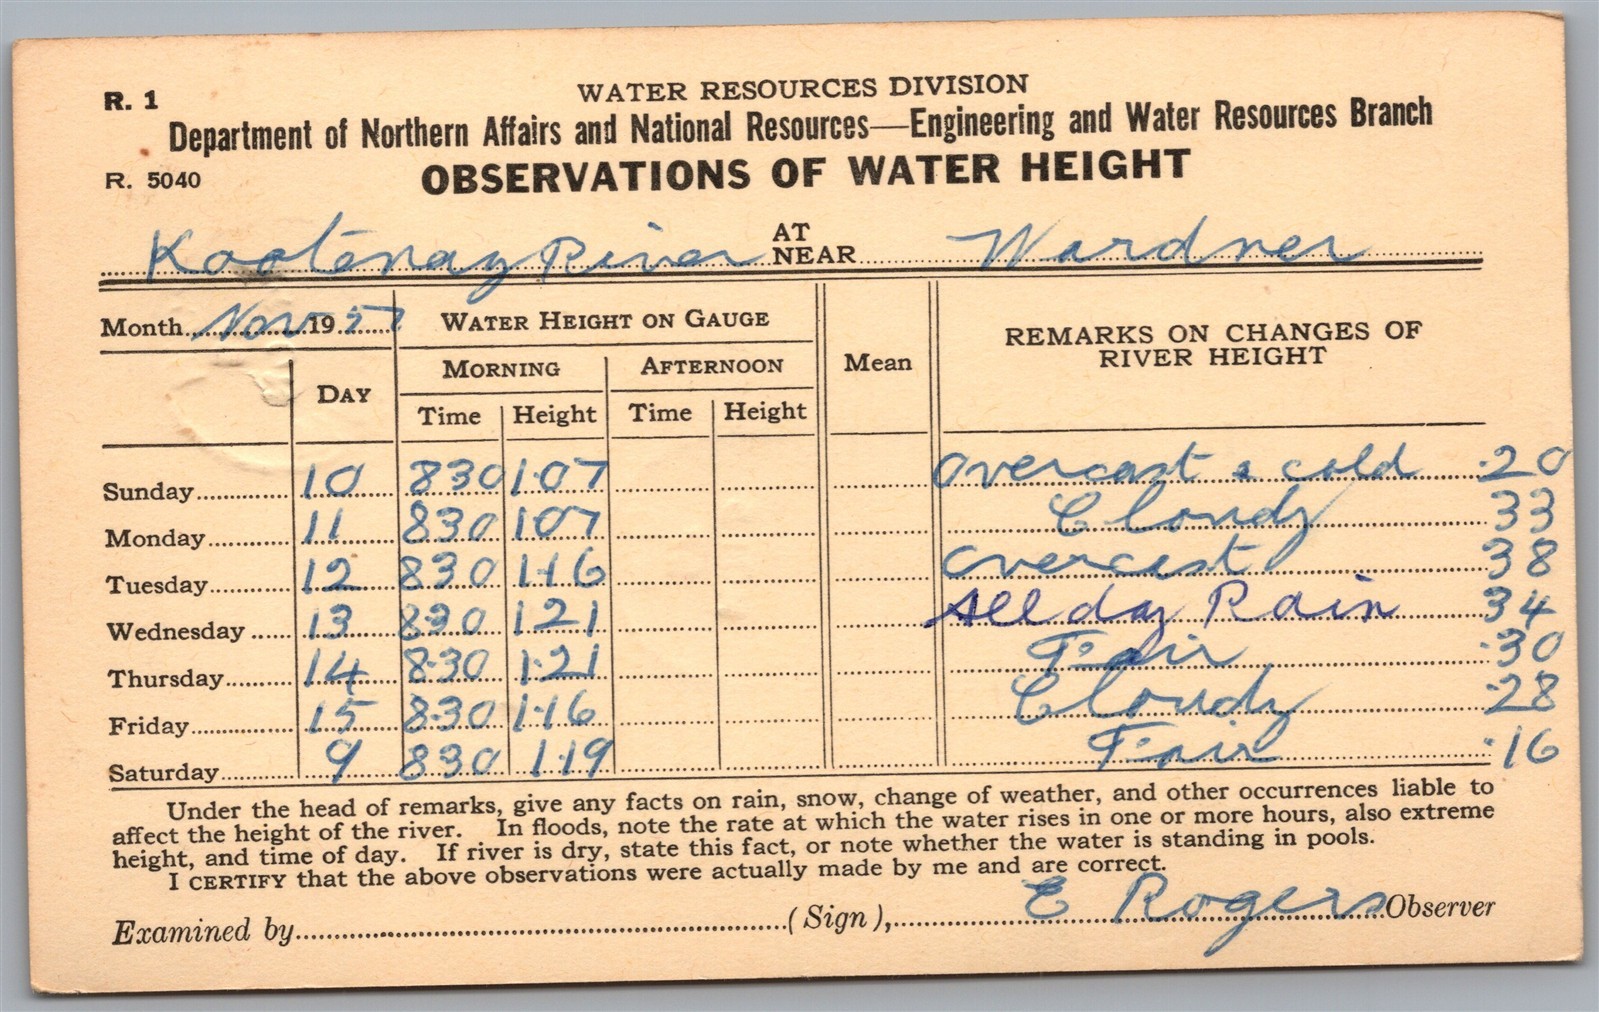 R. 1
WATER RESOURCES DIVISION
Department of Northern Affairs and National Resources—Engineering and Water Resources Branch
R. 5040
OBSERVATIONS OF WATER HEIGHT
Kootenay River AT NEAR Wardner
Month Nov 1957
WATER HEIGHT ON GAUGE
Mean
REMARKS ON CHANGES OF
RIVER HEIGHT
DAY
MORNING AFTERNOON
Time Height Time Height
Sunday 10 830 1.07 Overcast & cold .20
Monday 11 830 107 Cloudy 33
Tuesday 12 830 1.16 Overcast 38
Wednesday 13 830 121 All day Rain 34
Thursday 14 8.30 1.21 Fair .30
Friday 15 8.30 1.16 Cloudy .28
Saturday 9 830 1.19 Fair .16
Under the head of remarks, give any facts on rain, snow, change of weather, and other occurrences liable to
affect the height of the river. In floods, note the rate at which the water rises in one or more hours, also extreme
height, and time of day. If river is dry, state this fact, or note whether the water is standing in pools.
I CERTIFY that the above observations were actually made by me and are correct.
Examined by (Sign), E Rogers Observer